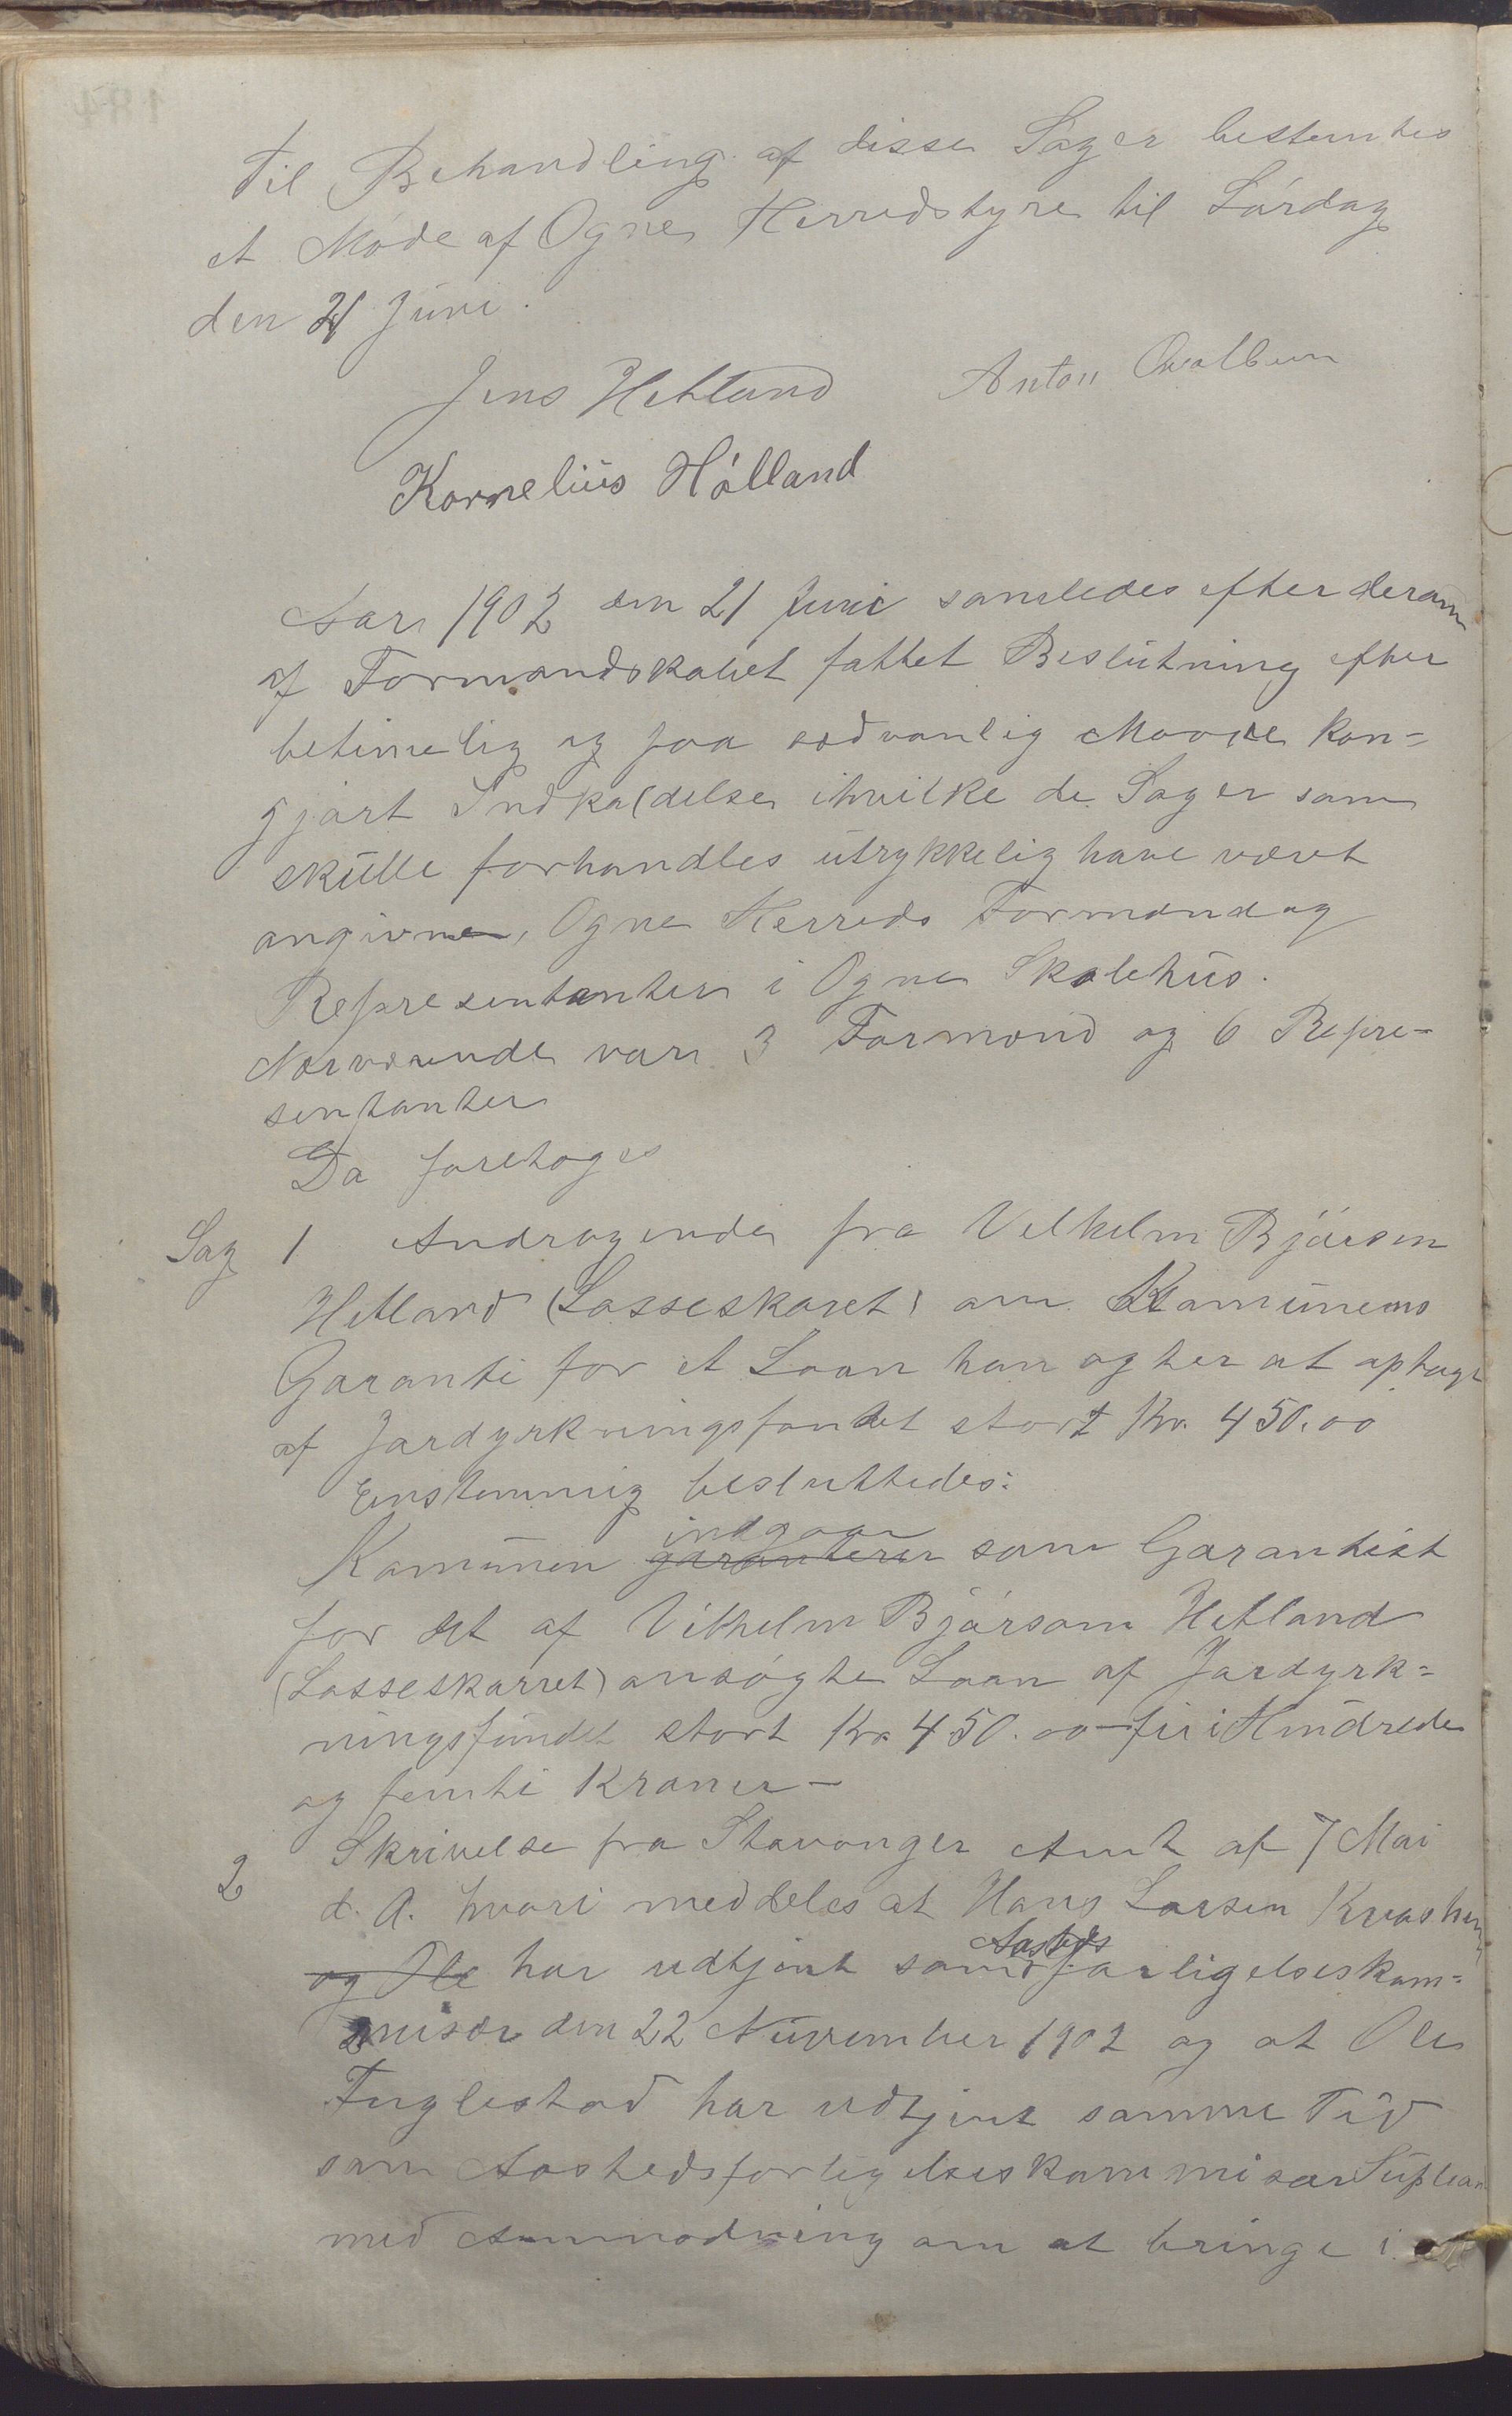 Til Behandling af disse Sager bestemtes
et Møde af Ogne Herredstyre til Lørdag
den 21 Juni.
Jens Hetland Anton
Kornelius Hølland
Aar 1902 den 21 Juni samledes efter derom
af Formandskabet fattet Beslutning efter
betimelig og paa sedvanlig Maade kun-
gjørt Indkaldelse ihvilke de Sager som
skulle forhandles utrykkelig have været
angivne, Ogne Herreds Formænd og
Representanter i Ogne Skolehus.
Nærværende var 3 Formænd og 6 Repre-
sentanter
Da foretoges
Sag 1 Andragende fra Velhelm Bjørsen
Hetland (Lasseskaret) om Kommunens
Garanti for et Laan han agter at optage
af Jordyrkningsfondet stort Kr. 450.00
Enstemmig besluttedes:
indgaar
Komunen garanterer som Garantist
for det af Vilhelm Bjørsom Hetland
(Lasseskarret) ansøgte Laan af Jordyrk=
ningsfundet stort Kr. 450.00 firi Hundrede
og femti Kroner –
2 Skrivelse fra Stavanger Amt af 7 Mai
d. A. hvori meddeles at Hans Larsen
Aasteds
og Ole har udtjent som forligelseskom=
misær den 22 November 1902 og at Ole
Fuglestad har udtjent samme Tid
som Aastedsforligelseskommisær
med Anmodning om at bringe i